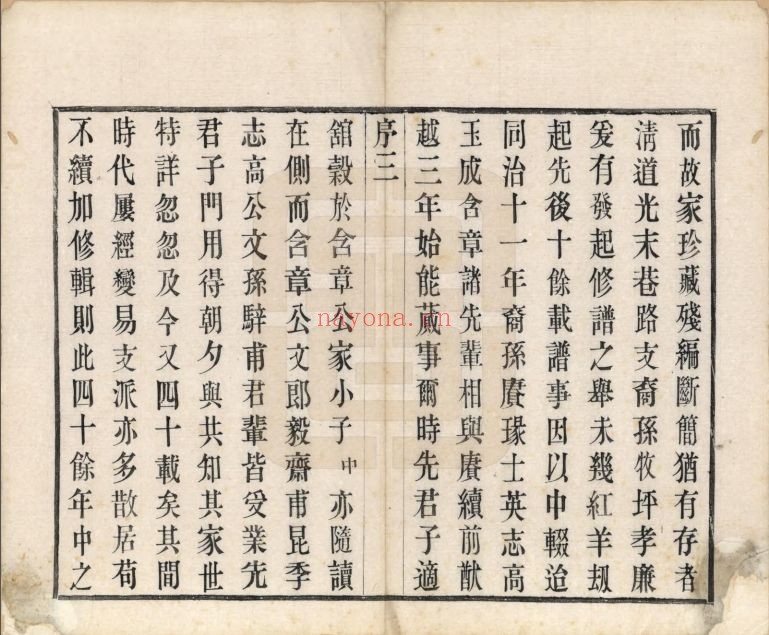 而故家珍藏殘編斷簡猶有存者
淸道光末巷路支裔孫牧坪孝廉
爰有發起修譜之舉未幾紅羊刼
起先後十餘載譜事因以中輟迨
同治十一年裔孫賡瑑士英志高
玉成含章諸先輩相與賡續前猷
越三年始能蕆事爾時先君子適
序三
舘穀於含章公家小子中亦隨讀
在側而含章公文郞毅齋甫昆季
志高公文孫騂甫君輩皆受業先
君子門用得朝夕與共知其家世
特詳忽忽及今又四十載矣其間
時代屢經變易支派亦多散居苟
不續加修輯則此四十餘年中之
nayona.cn